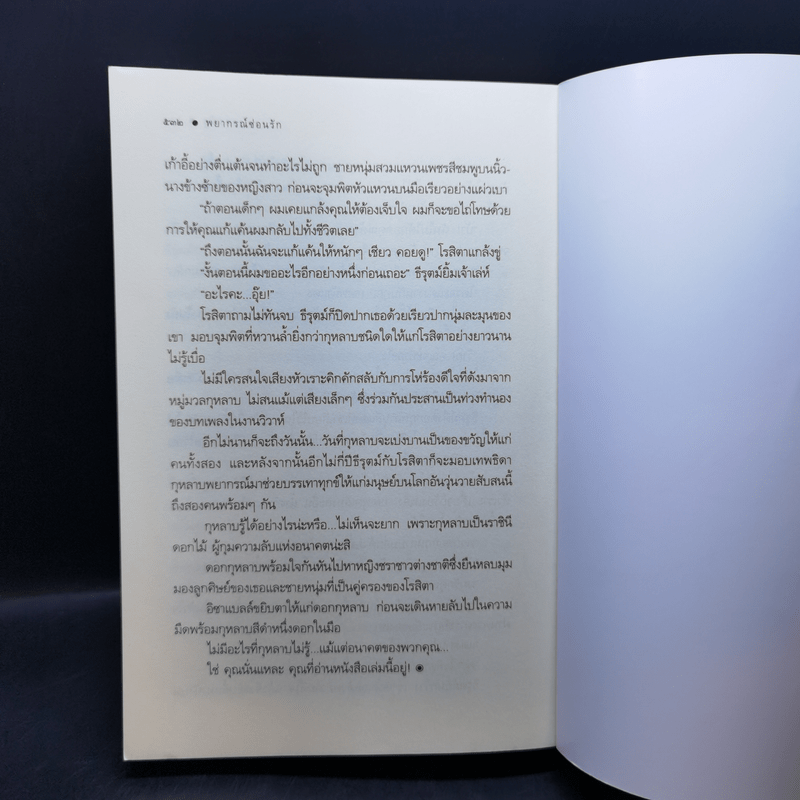 ๕๓๒ ● พยากรณ์ซ่อนรัก
เก้าอี้อย่างตื่นเต้นจนทำอะไรไม่ถูก ชายหนุ่มสวมแหวนเพชรสีชมพูบนนิ้ว-
นางข้างซ้ายของหญิงสาว ก่อนจะจุมพิตหัวแหวนบนมือเรียวอย่างแผ่วเบา
“ถ้าตอนเด็กๆ ผมเคยแกล้งคุณให้ต้องเจ็บใจ ผมก็จะขอไถ่โทษด้วย
การให้คุณแก้แค้นผมกลับไปทั้งชีวิตเลย”
“ถึงตอนนั้นฉันจะแก้แค้นให้หนักๆ เชียว คอยดู!” โรสิตาแกล้งขู่
“งั้นตอนนี้ผมขออะไรอีกอย่างหนึ่งก่อนเถอะ” ธีรุตม์ยิ้มเจ้าเล่ห์
“อะไรคะ...อุ๊ย!”
โรสิตาถามไม่ทันจบ ธีรุตม์ก็ปิดปากเธอด้วยเรียวปากนุ่มละมุนของ
เขา มอบจุมพิตที่หวานล้ำยิ่งกว่ากุหลาบชนิดใดให้แก่โรสิตาอย่างยาวนาน
ไม่รู้เบื่อ
ไม่มีใครสนใจเสียงหัวเราะคิกคักสลับกับการโห่ร้องดีใจที่ดังมาจาก
หมู่มวลกุหลาบ ไม่สนแม้แต่เสียงเล็กๆ ซึ่งร่วมกันประสานเป็นท่วงทำนอง
ของบทเพลงในงานวิวาห์
อีกไม่นานก็จะถึงวันนั้น...วันที่กุหลาบจะเบ่งบานเป็นของขวัญให้แก่
คนทั้งสอง และหลังจากนั้นอีกไม่กี่ปีธีรุตม์กับโรสิตาก็จะมอบเทพธิดา
กุหลาบพยากรณ์มาช่วยบรรเทาทุกข์ให้แก่มนุษย์บนโลกอันวุ่นวายสับสนนี้
ถึงสองคนพร้อมๆ กัน
กุหลาบรู้ได้อย่างไรน่ะหรือ...ไม่เห็นจะยาก เพราะกุหลาบเป็นราชินี
ดอกไม้ ผู้กุมความลับแห่งอนาคตน่ะสิ
ดอกกุหลาบพร้อมใจกันหันไปหาหญิงชราชาวต่างชาติซึ่งยืนหลบมุม
มองลูกศิษย์ของเธอและชายหนุ่มที่เป็นคู่ครองของโรสิตา
อิซาเบลล์ขยิบตาให้แก่ดอกกุหลาบ ก่อนจะเดินหายลับไปในความ
มืดพร้อมกุหลาบสีดำหนึ่งดอกในมือ
ไม่มีอะไรที่กุหลาบไม่รู้...แม้แต่อนาคตของพวกคุณ...
ใช่ คุณนั่นแหละ คุณที่อ่านหนังสือเล่มนี้อยู่! ◉